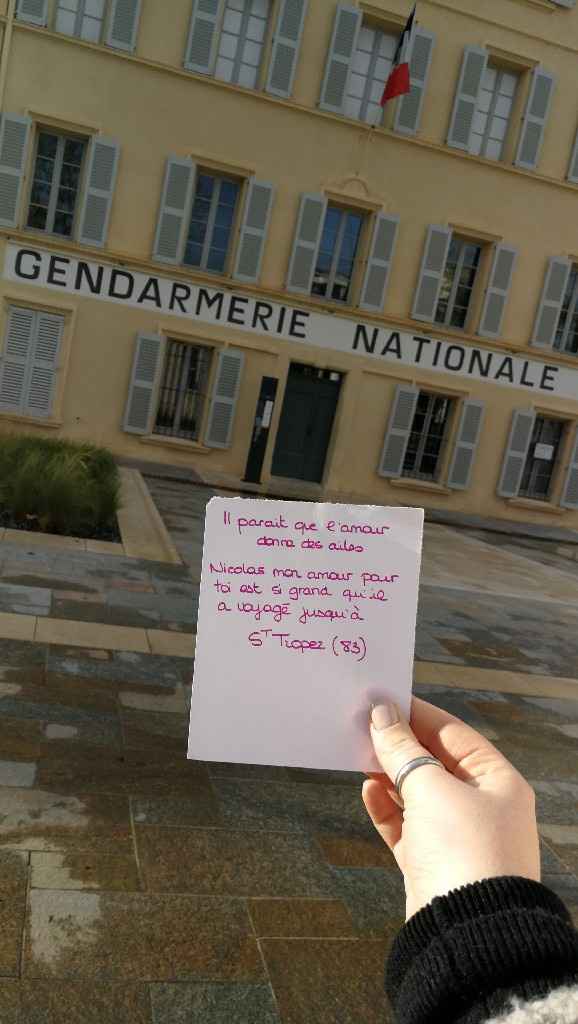 GENDARMERIE NATIONALE
Il parait que l'amour
donne des ailes
Nicolas mon amour pour
toi est si grand qu'il
a voyagé jusqu'à
ST Tropez (83)